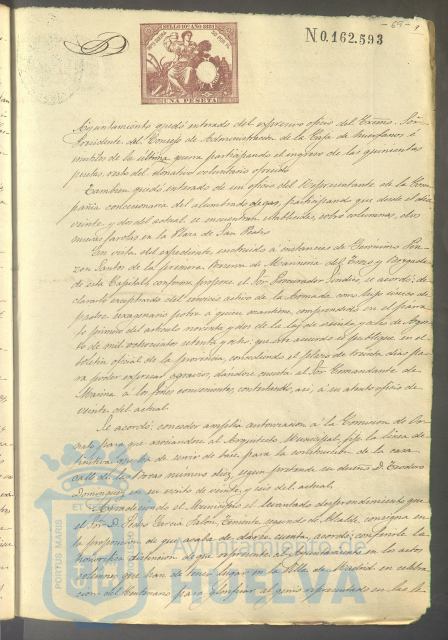 SELLO 10º AÑO 1881
UNA PESETA
N 0.162.593
Ayuntamiento quedó enterado del expresivo oficio del Excmo. Sor.
Presidente del Consejo de Administracion de la Caja de huerfanos é
inutiles de la última guerra participando el ingreso de las quinientas
pesetas, resto del donativo voluntario ofrecido
Tambien quedó enterado de un oficio del Representante de la Com-
pañia concesionaria del alumbrado de gas, participando que desde el dia
veinte y dos del actual, se encuentran establecidos, sobre columnas, dos
nuevos faroles en la Plaza de San Pedro
En vista del expediente instruido á instancias de Geronimo Pin-
zon Santos de la primera de Marineria del Trozo y
de esta Capital, conforme propone el Sor. Procurador Sindico, se acordó: de-
clararle exceptuado del servicio activo de la Armada como hijo unico de
padre sexagenario pobre á quien mantiene, comprendido en el párra-
fo primero del articulo noventa y dos de la ley de
de mil ochocientos setenta y que este acuerdo se publique en el
boletin oficial de la provincia, concediendo el plazo de treinta dias pa-
ra poder expresar agravios, dandose cuenta al Sor. Comandante de
Marina á los fines convenientes, contestando, asi, á su atento oficio de
veinte del actual.
Se acordó: conceder amplia autorizacion á la Comision de Or-
nato para que asociandose al Arquitecto Municipal, fije la linea de-
finitiva que ha de servir de base para la construccion de la casa
calle de las Bocas número diez, segun pretende su dueño D. Teodoro
Dominguez en su escrito de veinte y seis del actual.
Agradeciendo el Municipio el levantado desprendimiento que
el Sor. D. Pedro Garcia Jalon, Teniente segundo de Alcalde, consigna en
la proposicion de que acaba de darse cuenta, acordó: conferirle la
honorifica distincion de que represente al Ayuntamiento en los actos
solemnes que han de tener lugar en la Villa de Madrid en celebra-
cion del Centenario para glorificar al genio representado en las le-
PORTUS MARIS
Ayuntamiento de
HUELVA